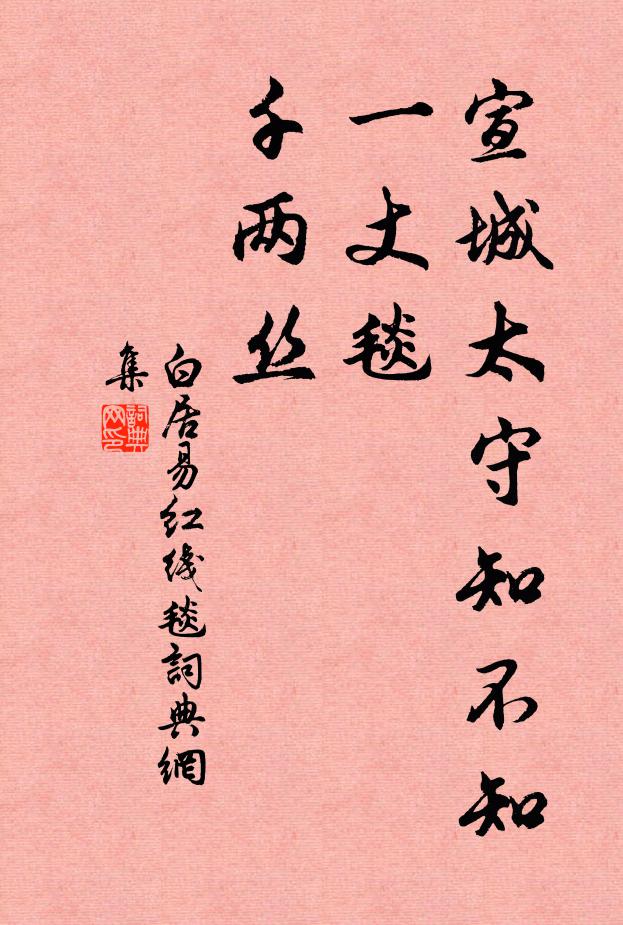 宣城太守知不知
一丈毯
千两丝
白居易红线毯詞典網
集
詞典
网印